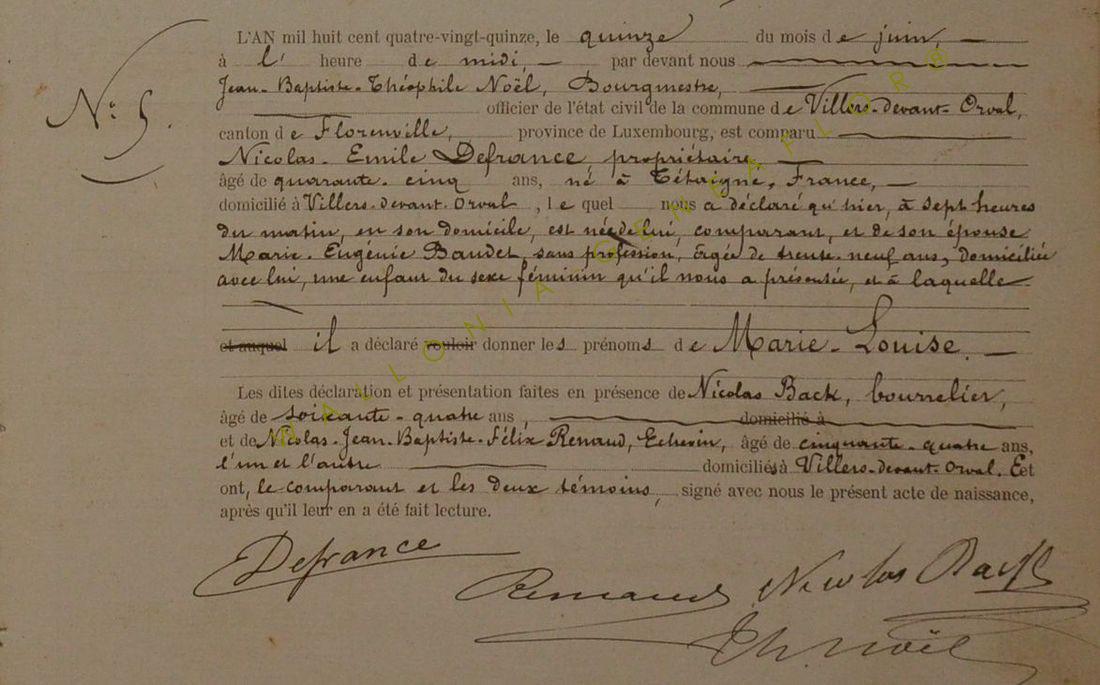 L'AN mil huit cent quatre-vingt-quinze, le quinze du mois de juin,
à l' heure de midi, par devant nous
Jean-Baptiste-Théophile Noël, Bourgmestre,
officier de l'état civil de la commune de Villers-devant-Orval,
N° 5.
canton de Florenville, province de Luxembourg, est comparu
Nicolas-Emile Defrance propriétaire
âgé de quarante-cinq ans, né à Tétaigne, France,
domicilié à Villers-devant-Orval, lequel nous a déclaré qu'hier, à sept heures
du matin, en son domicile, est née de lui, comparant, et de son épouse
Marie-Eugénie Baudet, sans profession, âgée de trente-neuf ans, domiciliée
avec lui, une enfant du sexe féminin qu'il nous a présentée, et à laquelle
et auquel il a déclaré vouloir donner les prénoms de Marie-Louise.
Les dites déclaration et présentation faites en présence de Nicolas Back, bourrelier,
âgé de soixante-quatre ans, domicilié à
et de Nicolas-Jean-Baptiste-Félix Renaud, Echevin, âgé de cinquante-quatre ans,
l'un et l'autre domiciliés à Villers-devant-Orval. Et
ont, le comparant et les deux témoins, signé avec nous le présent acte de naissance,
après qu'il leur en a été fait lecture.
Defrance
Renaud Nicolas Back
Th Noël